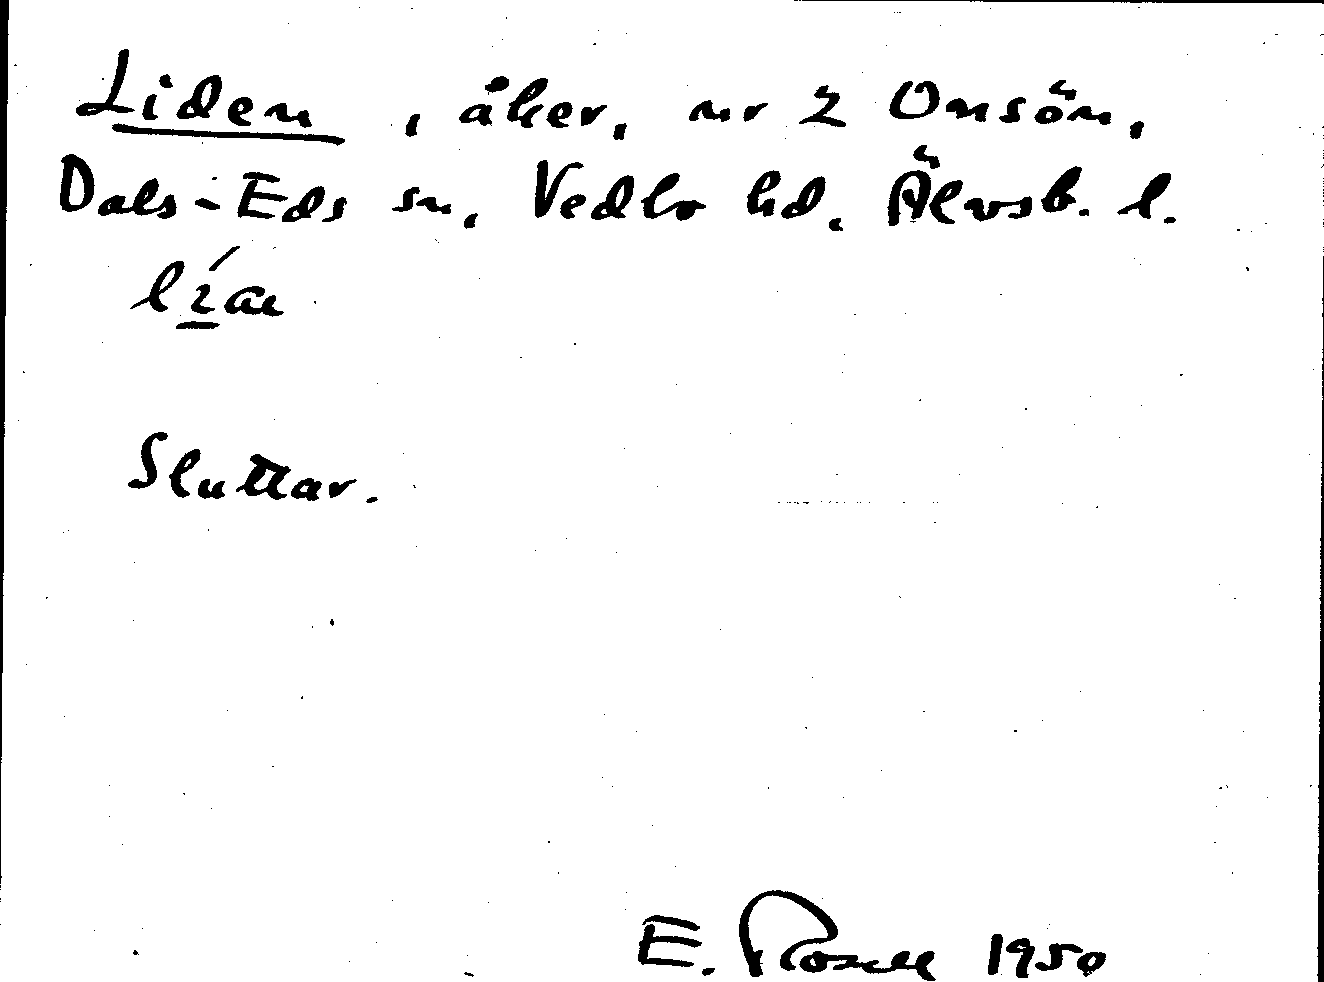 Liden, åker, nr 2 Onsön,
Dals-Eds sn, Vedbo hd. Älvsb. l.
Sluttar.
E. Rosell 1950